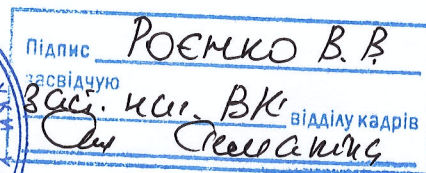 Підпис Роєнко В. В.
засвідчую
Заст. нач. ВК відділу кадрів